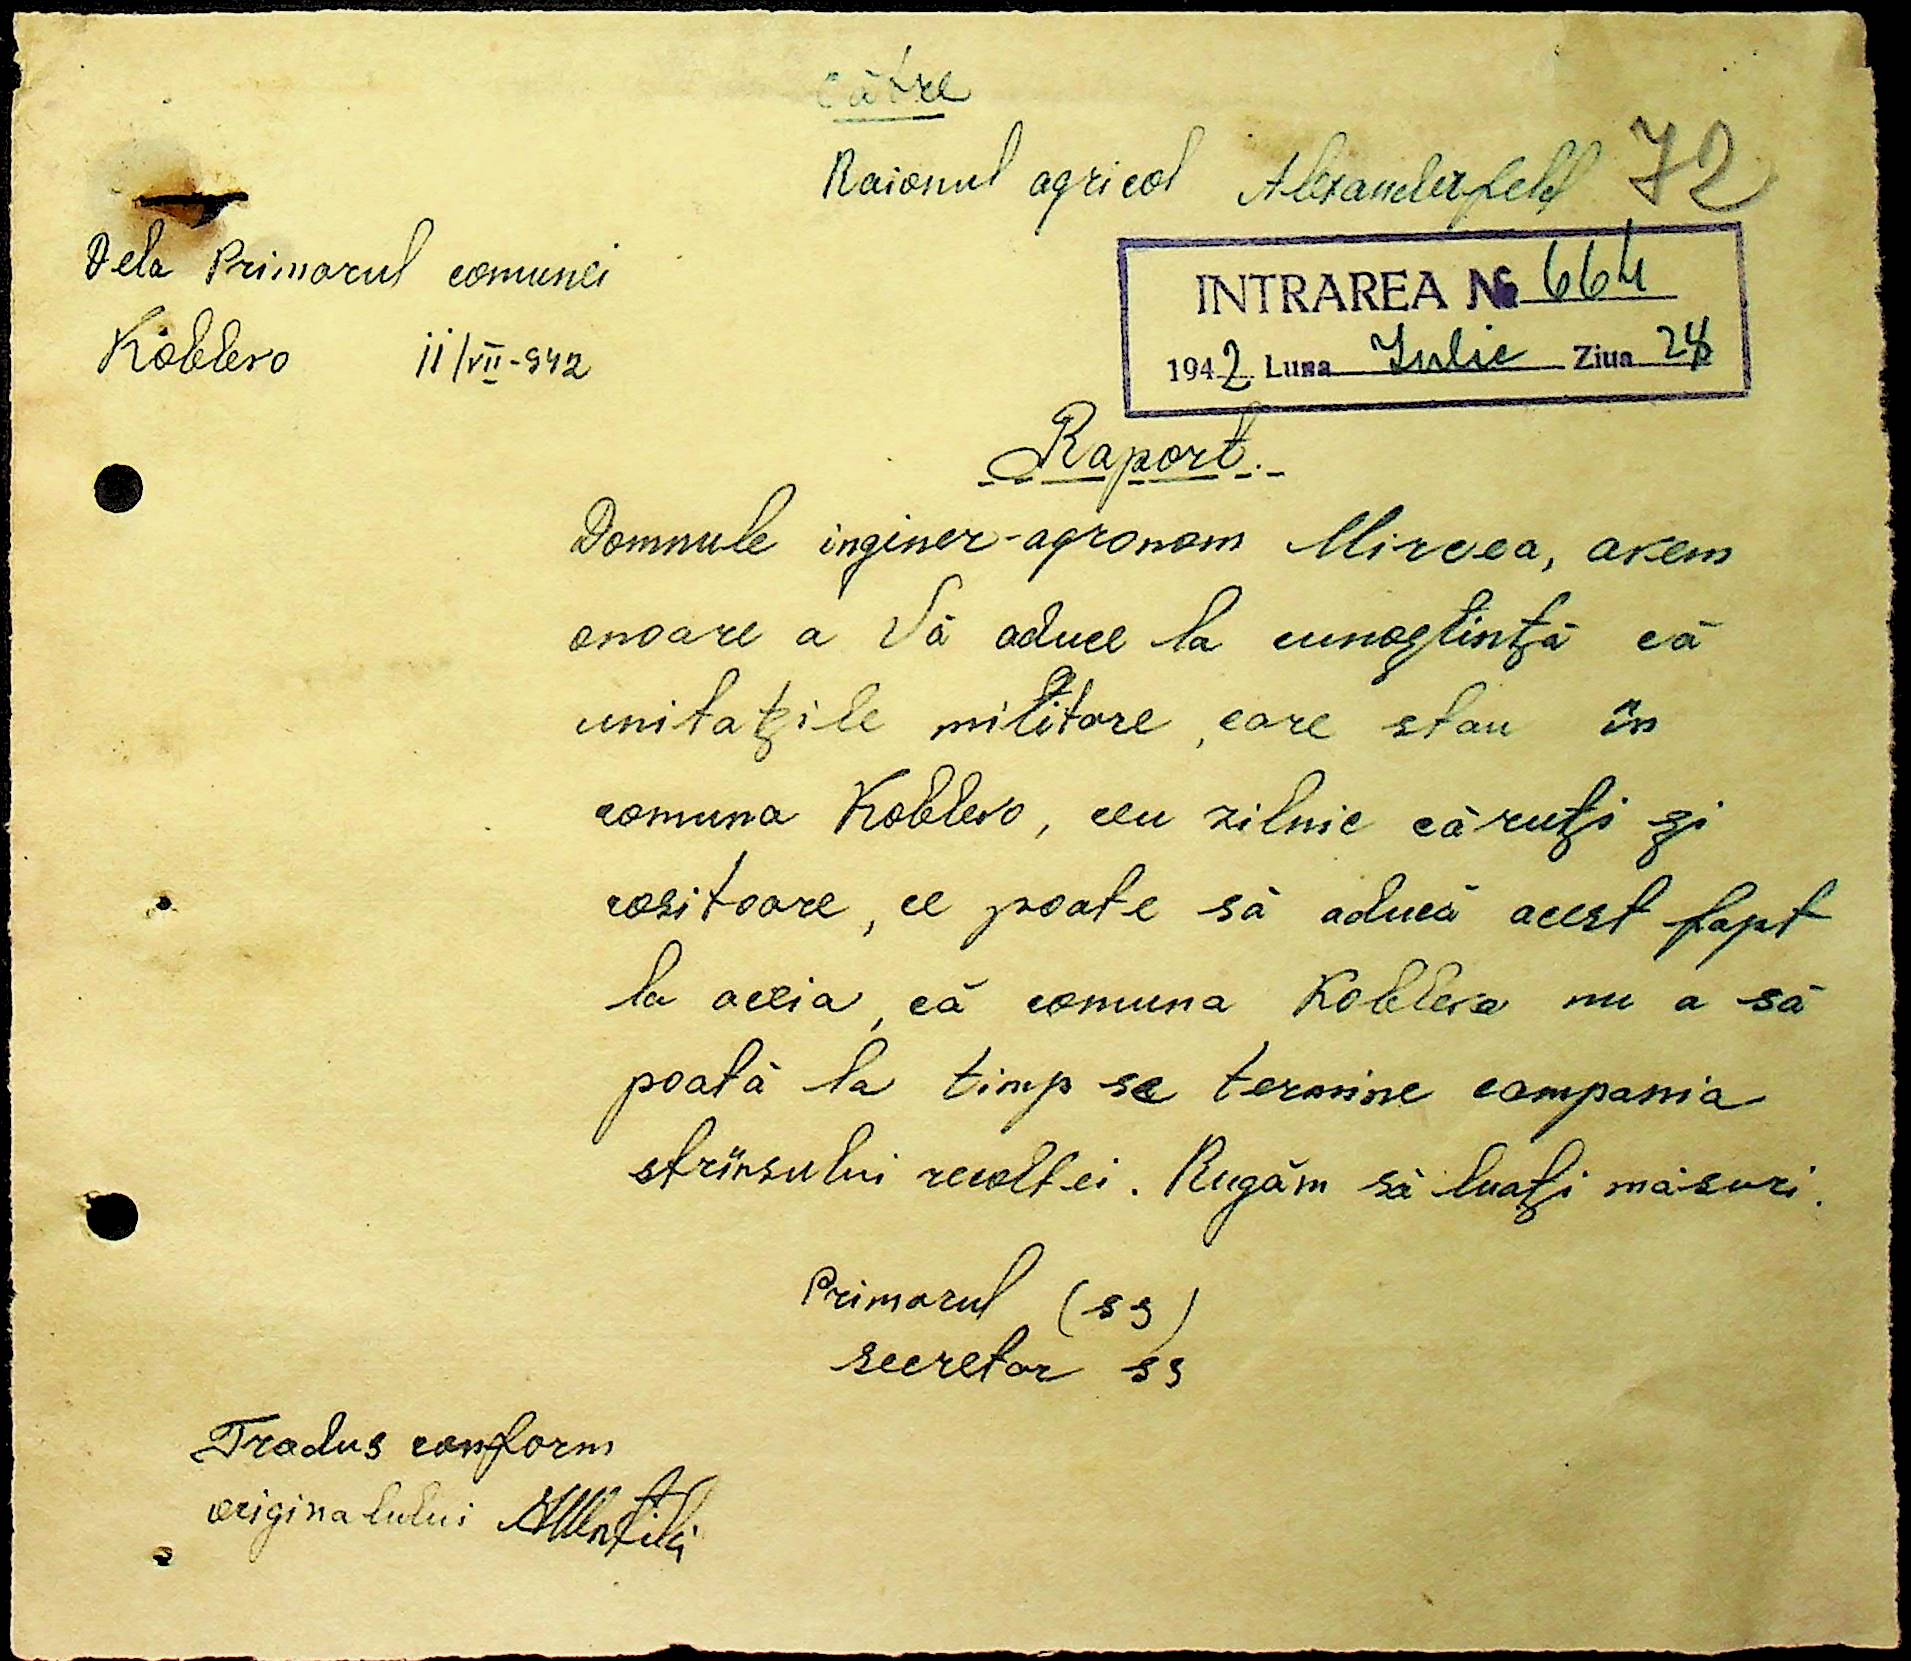 către
Raionul agricol Alexanderfeld 72
Dela Primarul comunei
Koblevo 11/VII-942
INTRAREA № 664
1942 Luna Iulie Ziua
Raport.
Domnule inginer-agronom Mircea, avem
onoare a Vă aduce la cunoștință că
unitațile militare, care stau în
comuna Koblevo, cu zilnic căruți și
cositoare, ce poate să aducă acest fapt
la aceia, că comuna Koblevo nu a să
poată la timp se termine campania
strînsului recoltei. Rugăm să luați măsuri.
Primarul (ss)
secretar ss
Tradus conform
originalului